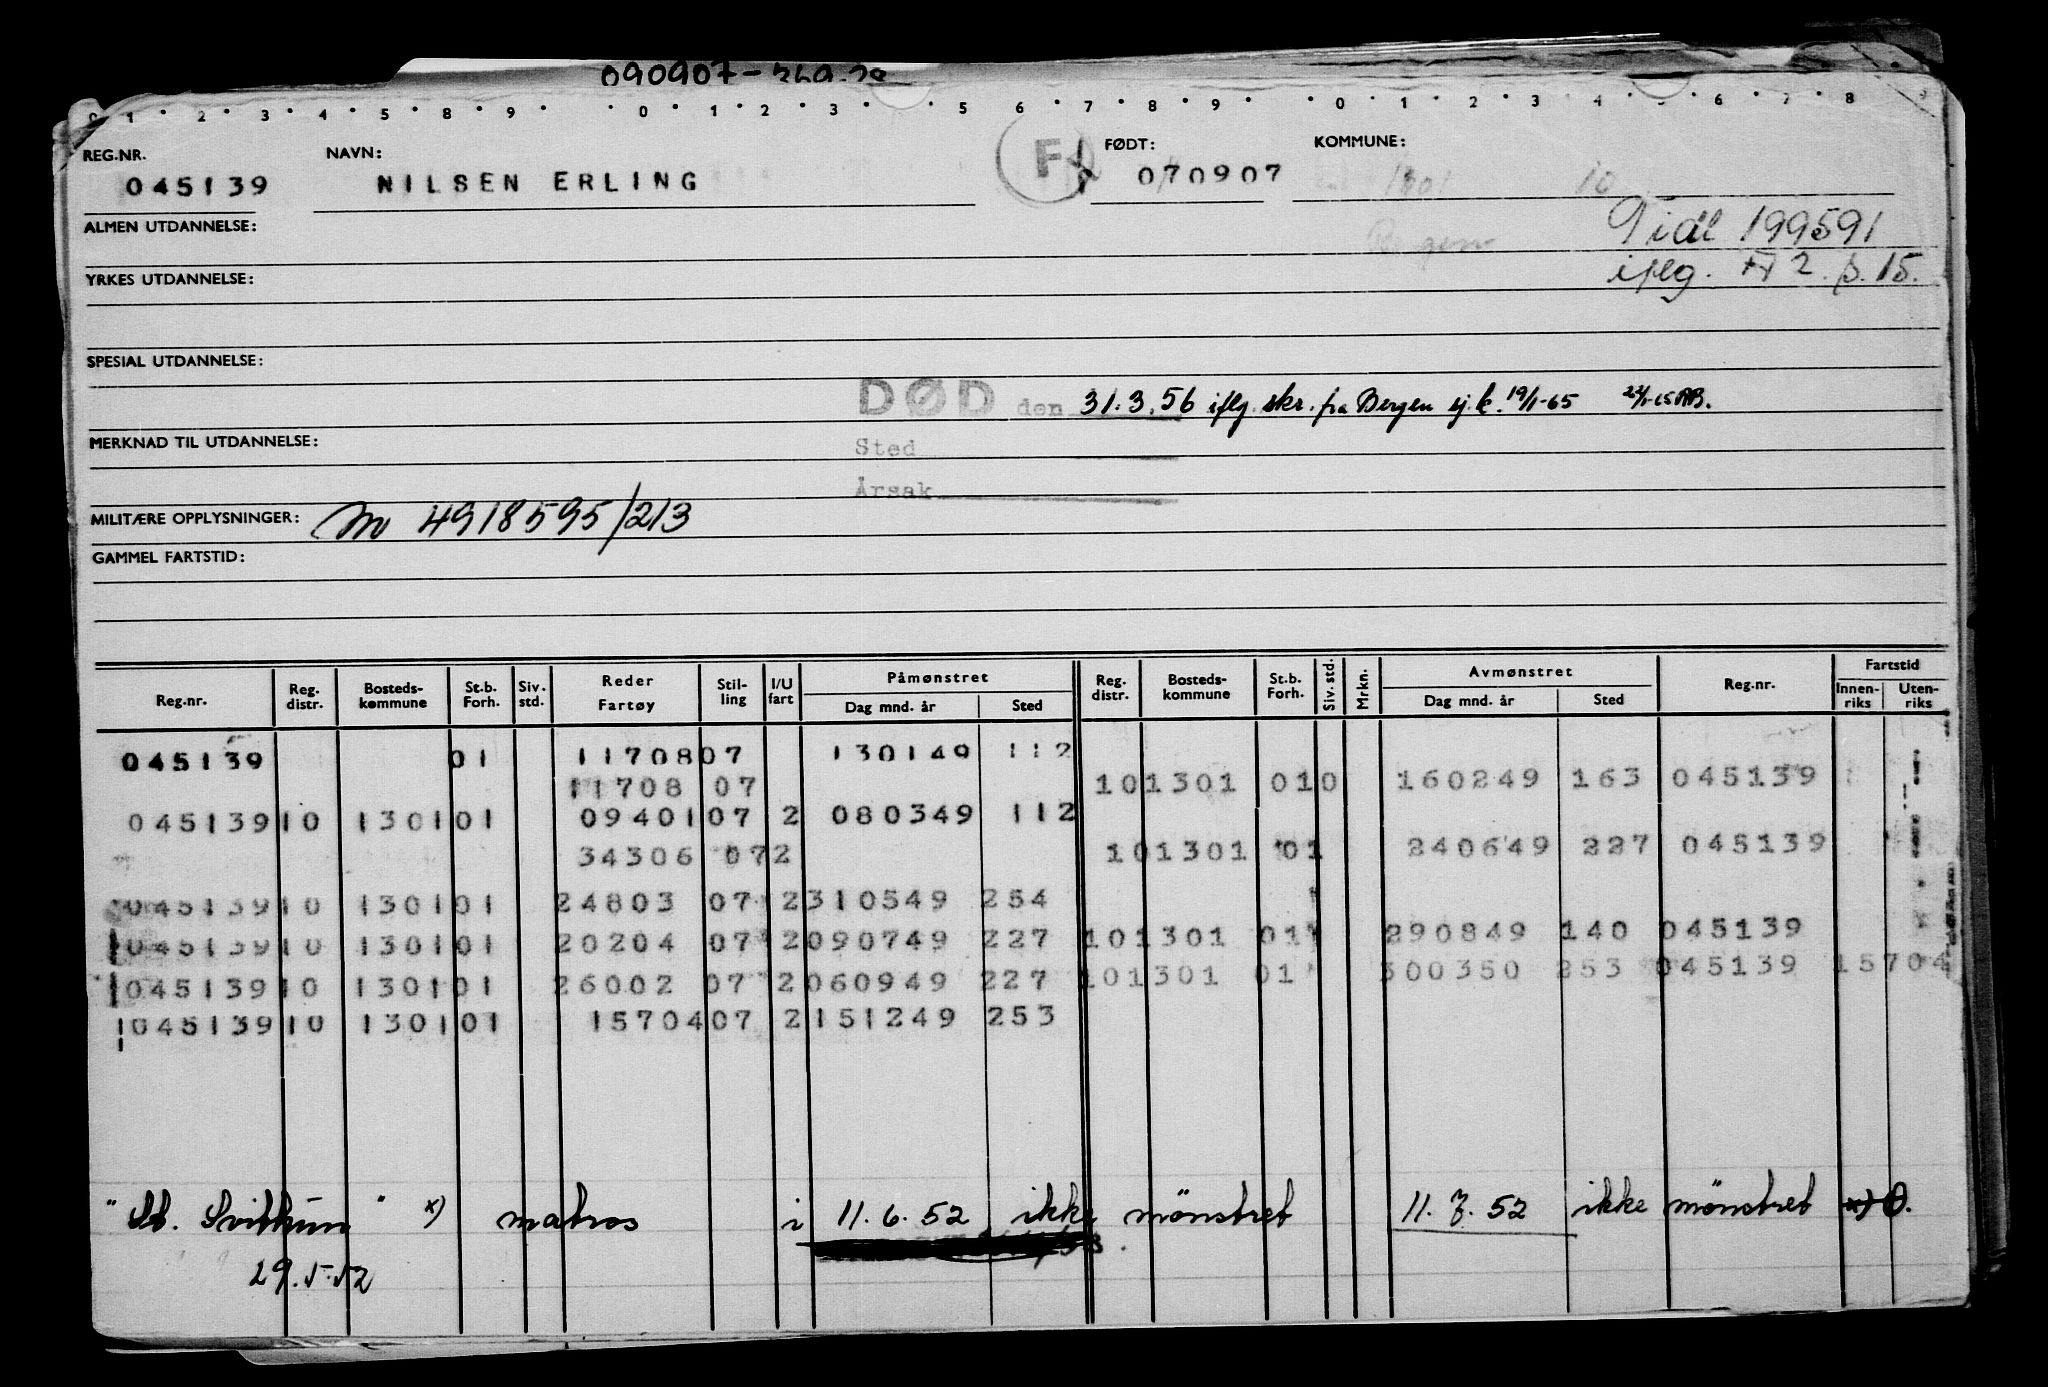 090907-
0 1 2 3 4 5 8 9 0 1 2 3 5 6 7 8 9 0 1 2 3 4 5 6 7 8
REG.NR. NAVN: F FØDT: KOMMUNE:
045139 NILSEN ERLING 070907 1301 10
ALMEN UTDANNELSE: Tidl 199591
YRKES UTDANNELSE: iflg. A 2. s. 15.
SPESIAL UTDANNELSE:
DØD den 31.3.56 iflg. skr. fra Bergen sj.k. 19/1-65
MERKNAD TIL UTDANNELSE: Sted
Årsak
MILITÆRE OPPLYSNINGER: M 4918595/213
GAMMEL FARTSTID:
Reg.nr. Reg. distr. Bosteds-kommune St.b. Forh. Siv. std. Reder Fartøy Stil-ling I/U fart Påmønstret Dag mnd. år Sted Reg. distr. Bosteds-kommune St.b. Forh. Siv. std. Mrkn. Avmønstret Dag mnd. år Sted Reg.nr. Fartstid Innen-riks Uten-riks
045139 01 11708 07 130149 112
11708 07 10 1301 01 0 160249 163 045139
045139 10 1301 01 09401 07 2 080349 112
34306 07 2 10 1301 01 240649 227 045139
045139 10 1301 01 24803 07 2 310549 254
045139 10 1301 01 20204 07 2 090749 227 10 1301 01 290849 140 045139
045139 10 1301 01 26002 07 2 060949 227 10 1301 01 300350 253 045139 15704
045139 10 1301 01 15704 07 2 151249 253
"St. Svithun" x) matros i 11.6.52 ikke mønstret 11.7.52 ikke mønstret x) 0.
29.5.52